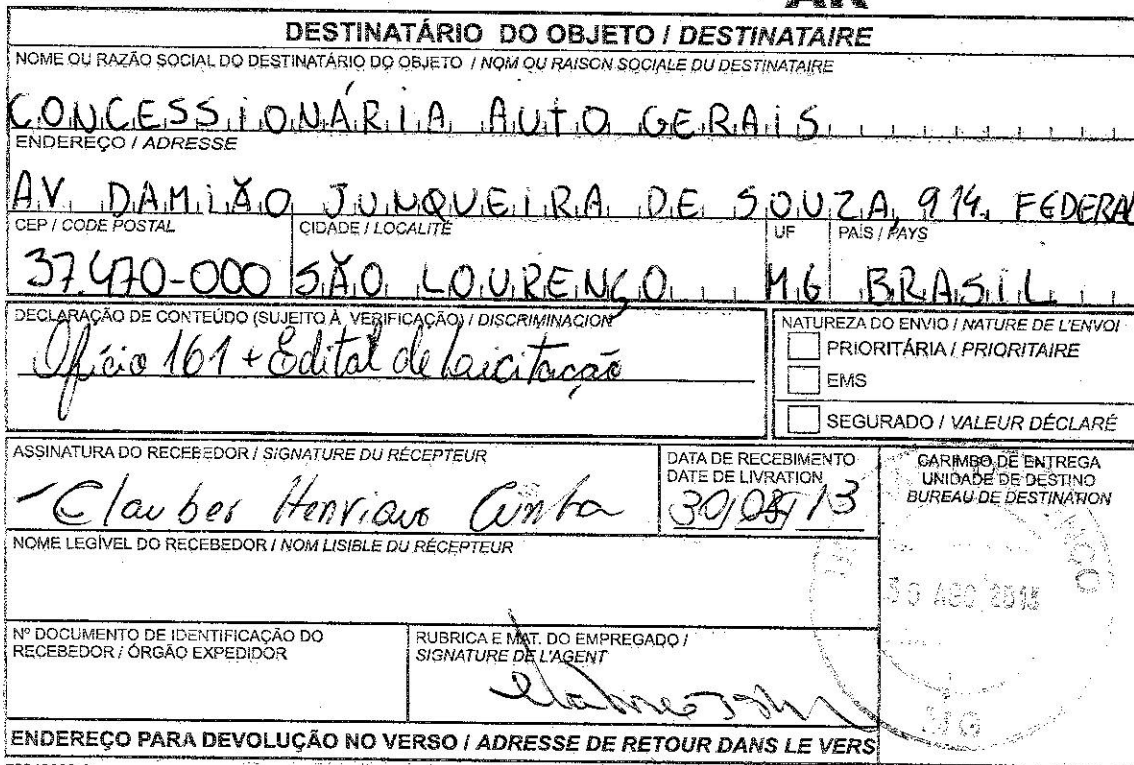 AR
DESTINATÁRIO DO OBJETO / DESTINATAIRE
NOME OU RAZÃO SOCIAL DO DESTINATÁRIO DO OBJETO / NOM OU RAISON SOCIALE DU DESTINATAIRE
CONCESSIONÁRIA AUTO GERAIS
ENDEREÇO / ADRESSE
AV. DAMIÃO JUNQUEIRA DE SOUZA, 914. FEDERAL
CEP / CODE POSTAL CIDADE / LOCALITÉ UF PAÍS / PAYS
37.470-000 SÃO LOURENÇO MG BRASIL
DECLARAÇÃO DE CONTEÚDO (SUJEITO À VERIFICAÇÃO) / DISCRIMINACION
NATUREZA DO ENVIO / NATURE DE L'ENVOI
Ofício 161 + Edital de Laicitação
PRIORITÁRIA / PRIORITAIRE
EMS
SEGURADO / VALEUR DÉCLARÉ
ASSINATURA DO RECEBEDOR / SIGNATURE DU RÉCEPTEUR
Clauber Henrique Cunha
DATA DE RECEBIMENTO
DATE DE LIVRATION
30/08/13
CARIMBO DE ENTREGA
UNIDADE DE DESTINO
BUREAU DE DESTINATION
30 AGO 2013
MG
NOME LEGÍVEL DO RECEBEDOR / NOM LISIBLE DU RÉCEPTEUR
Nº DOCUMENTO DE IDENTIFICAÇÃO DO
RECEBEDOR / ÓRGÃO EXPEDIDOR
RUBRICA E MAT. DO EMPREGADO /
SIGNATURE DE L'AGENT
ENDEREÇO PARA DEVOLUÇÃO NO VERSO / ADRESSE DE RETOUR DANS LE VERS